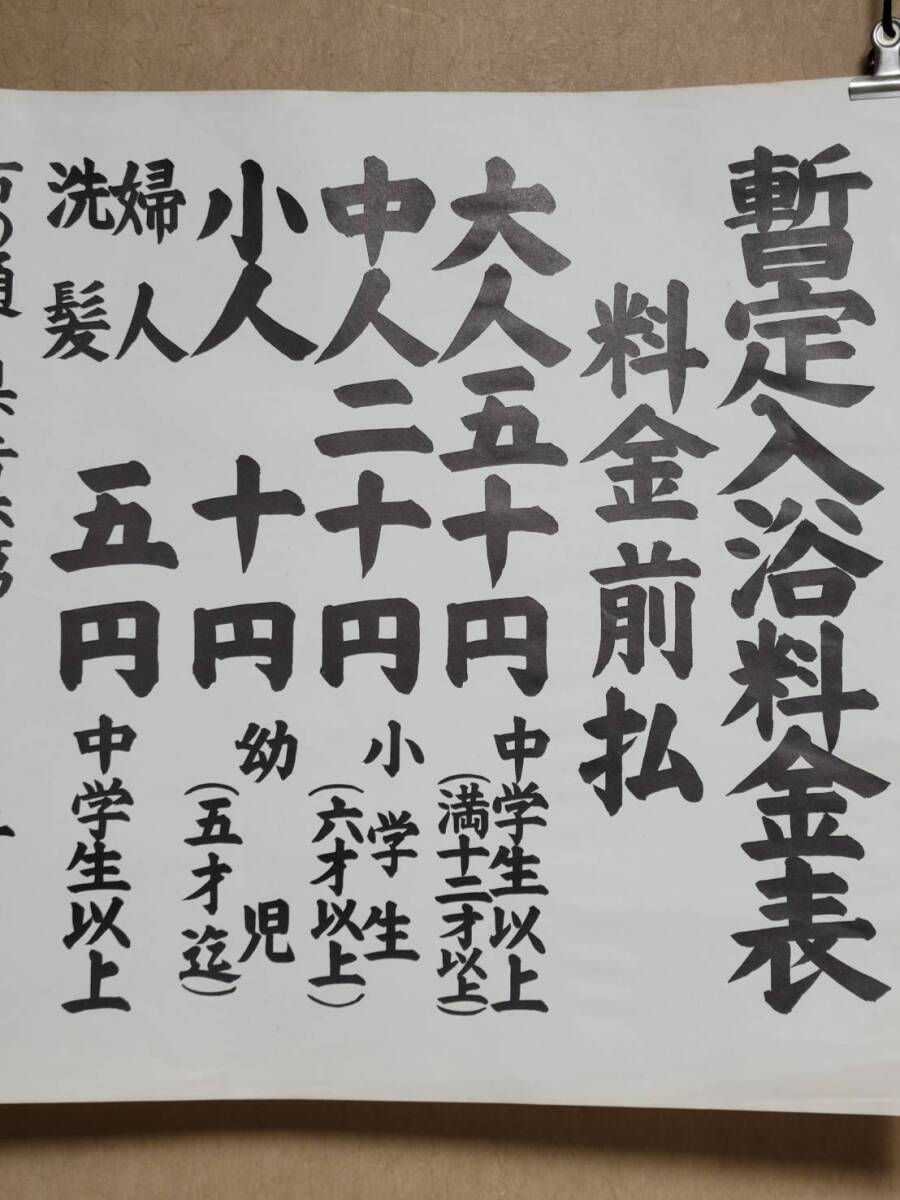 暫定入浴料金表
料金前払
大人五十円 中学生以上
(満十二才以上)
中人二十円 小学生
(六才以上)
小人 十円 幼児
(五才迄)
婦人
洗髪 五円 中学生以上